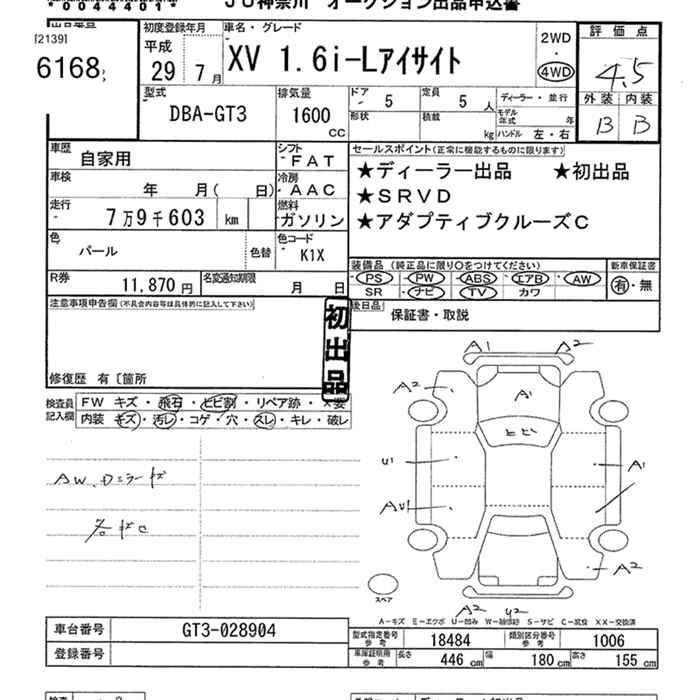 *0044401* JU神奈川 オークション出品申込書
[2139]
6168
初度登録年月
平成
29年7月
車名・グレード
XV 1.6i-Lアイサイト
2WD
・
4WD
評価点
4.5
外装 内装
B B
型式
DBA-GT3
排気量
1600
cc
ドア
5
定員
5人
ディーラー・並行
形状
積載
kg
モデル年式 年
ハンドル 左・右
車歴
自家用
シフト
FAT
車検
年 月( 日)
冷房
AAC
走行
7万9千603 km
燃料
ガソリン
色
パール
色替
色コード
K1X
R券
11,870円
名変通知期限
月 日
セールスポイント(正常に機能するものに限ります)
★ディーラー出品 ★初出品
★SRVD
★アダプティブクルーズC
装備品(純正品に限り○をつけてください)
新車保証書
PS・PW・ABS・エアB・AW
有・無
SR・ナビ・TV・カワ
後日品
保証書・取説
注意事項申告欄(不具合内容等は具体的に記入して下さい)
初出品
修復歴 有〔箇所
検査員記入欄
FW キズ・飛石・ヒビ割・リペア跡・
内装 キズ・汚レ・コゲ・穴・スレ・キレ・破レ
A1 A2
A2 A1
ヒビ
U1 A1
AU1
A2
A2 U2
スペア
A-キズ E-エクボ U-凹み W-補修跡 S-サビ C-腐食 XX-交換済
車台番号
GT3-028904
登録番号
型式指定番号
参考
18484
類別区分番号
参考
1006
車庫証明用
参考
長さ 446cm
幅 180cm
高さ 155cm